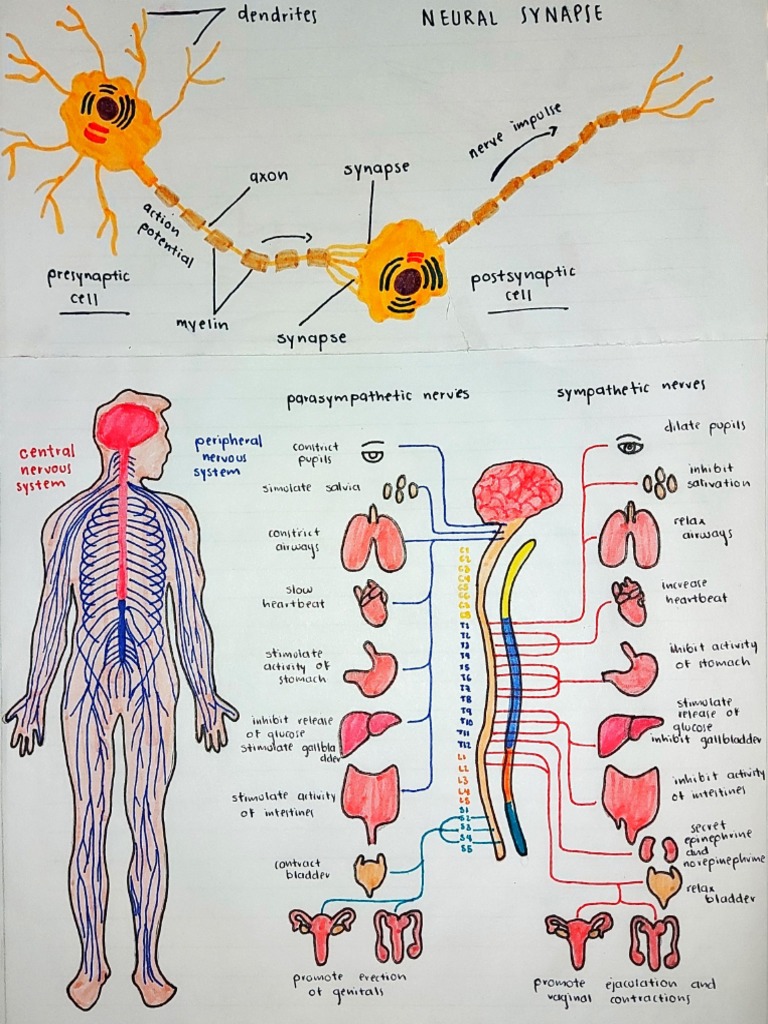 dendrites
NEURAL SYNAPSE
nerve impulse
axon
synapse
action
potential
presynaptic
cell
postsynaptic
cell
myelin
synapse
central
nervous
system
peripheral
nervous
system
parasympathetic nerves
sympathetic nerves
constrict
pupils
simolate salvia
constrict
airways
slow
heartbeat
stimolate
activity of
stomach
inhibit release
of glucose
stimulate gallbla
dder
stimulate activity
of intestines
contract
bladder
promote erection
of genitals
C1
C2
C3
C4
C5
C6
C7
C8
T1
T2
T3
T4
T5
T6
T7
T8
T9
T10
T11
T12
L1
L2
L3
L4
L5
S1
S2
S3
S4
S5
dilate pupils
inhibit
salivation
relax
airways
increase
heartbeat
inhibit activity
of stomach
stimulate
release of
glucose
inhibit gallbladder
inhibit activity
of intestines
secret
epinephrine
and
norepinephrine
relax
bladder
promote ejaculation and
vaginal contractions